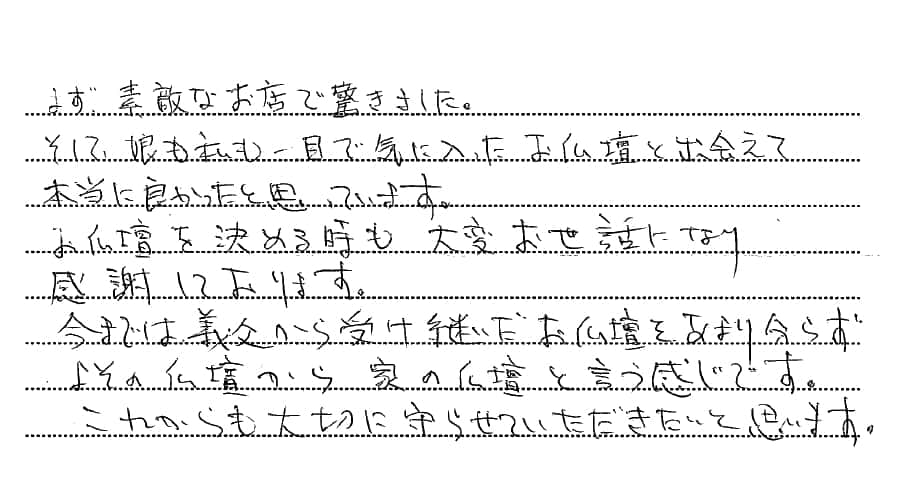 まず、素敵なお店で驚きました。
そして、娘も私も一目で気に入ったお仏壇と出会えて
本当に良かったと思っています。
お仏壇を決める時も 大変お世話になり
感謝しております。
今までは義父から受け継いだお仏壇をあまり分らず
よその仏壇から 家の仏壇と言う感じです。
これからも大切に守らせていただきたいと思います。